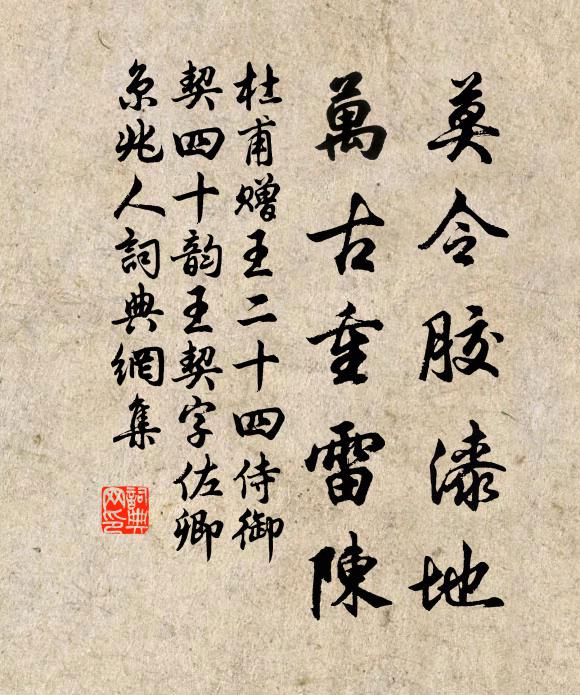 莫令胶漆地
萬古重雷陳
杜甫赠王二十四侍御
契四十韵王契字佐卿
京兆人詞典網集
詞典网印